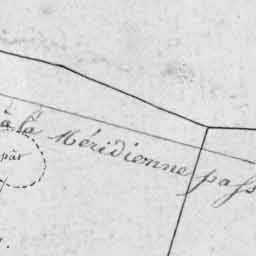 à la Méridienne pass
par